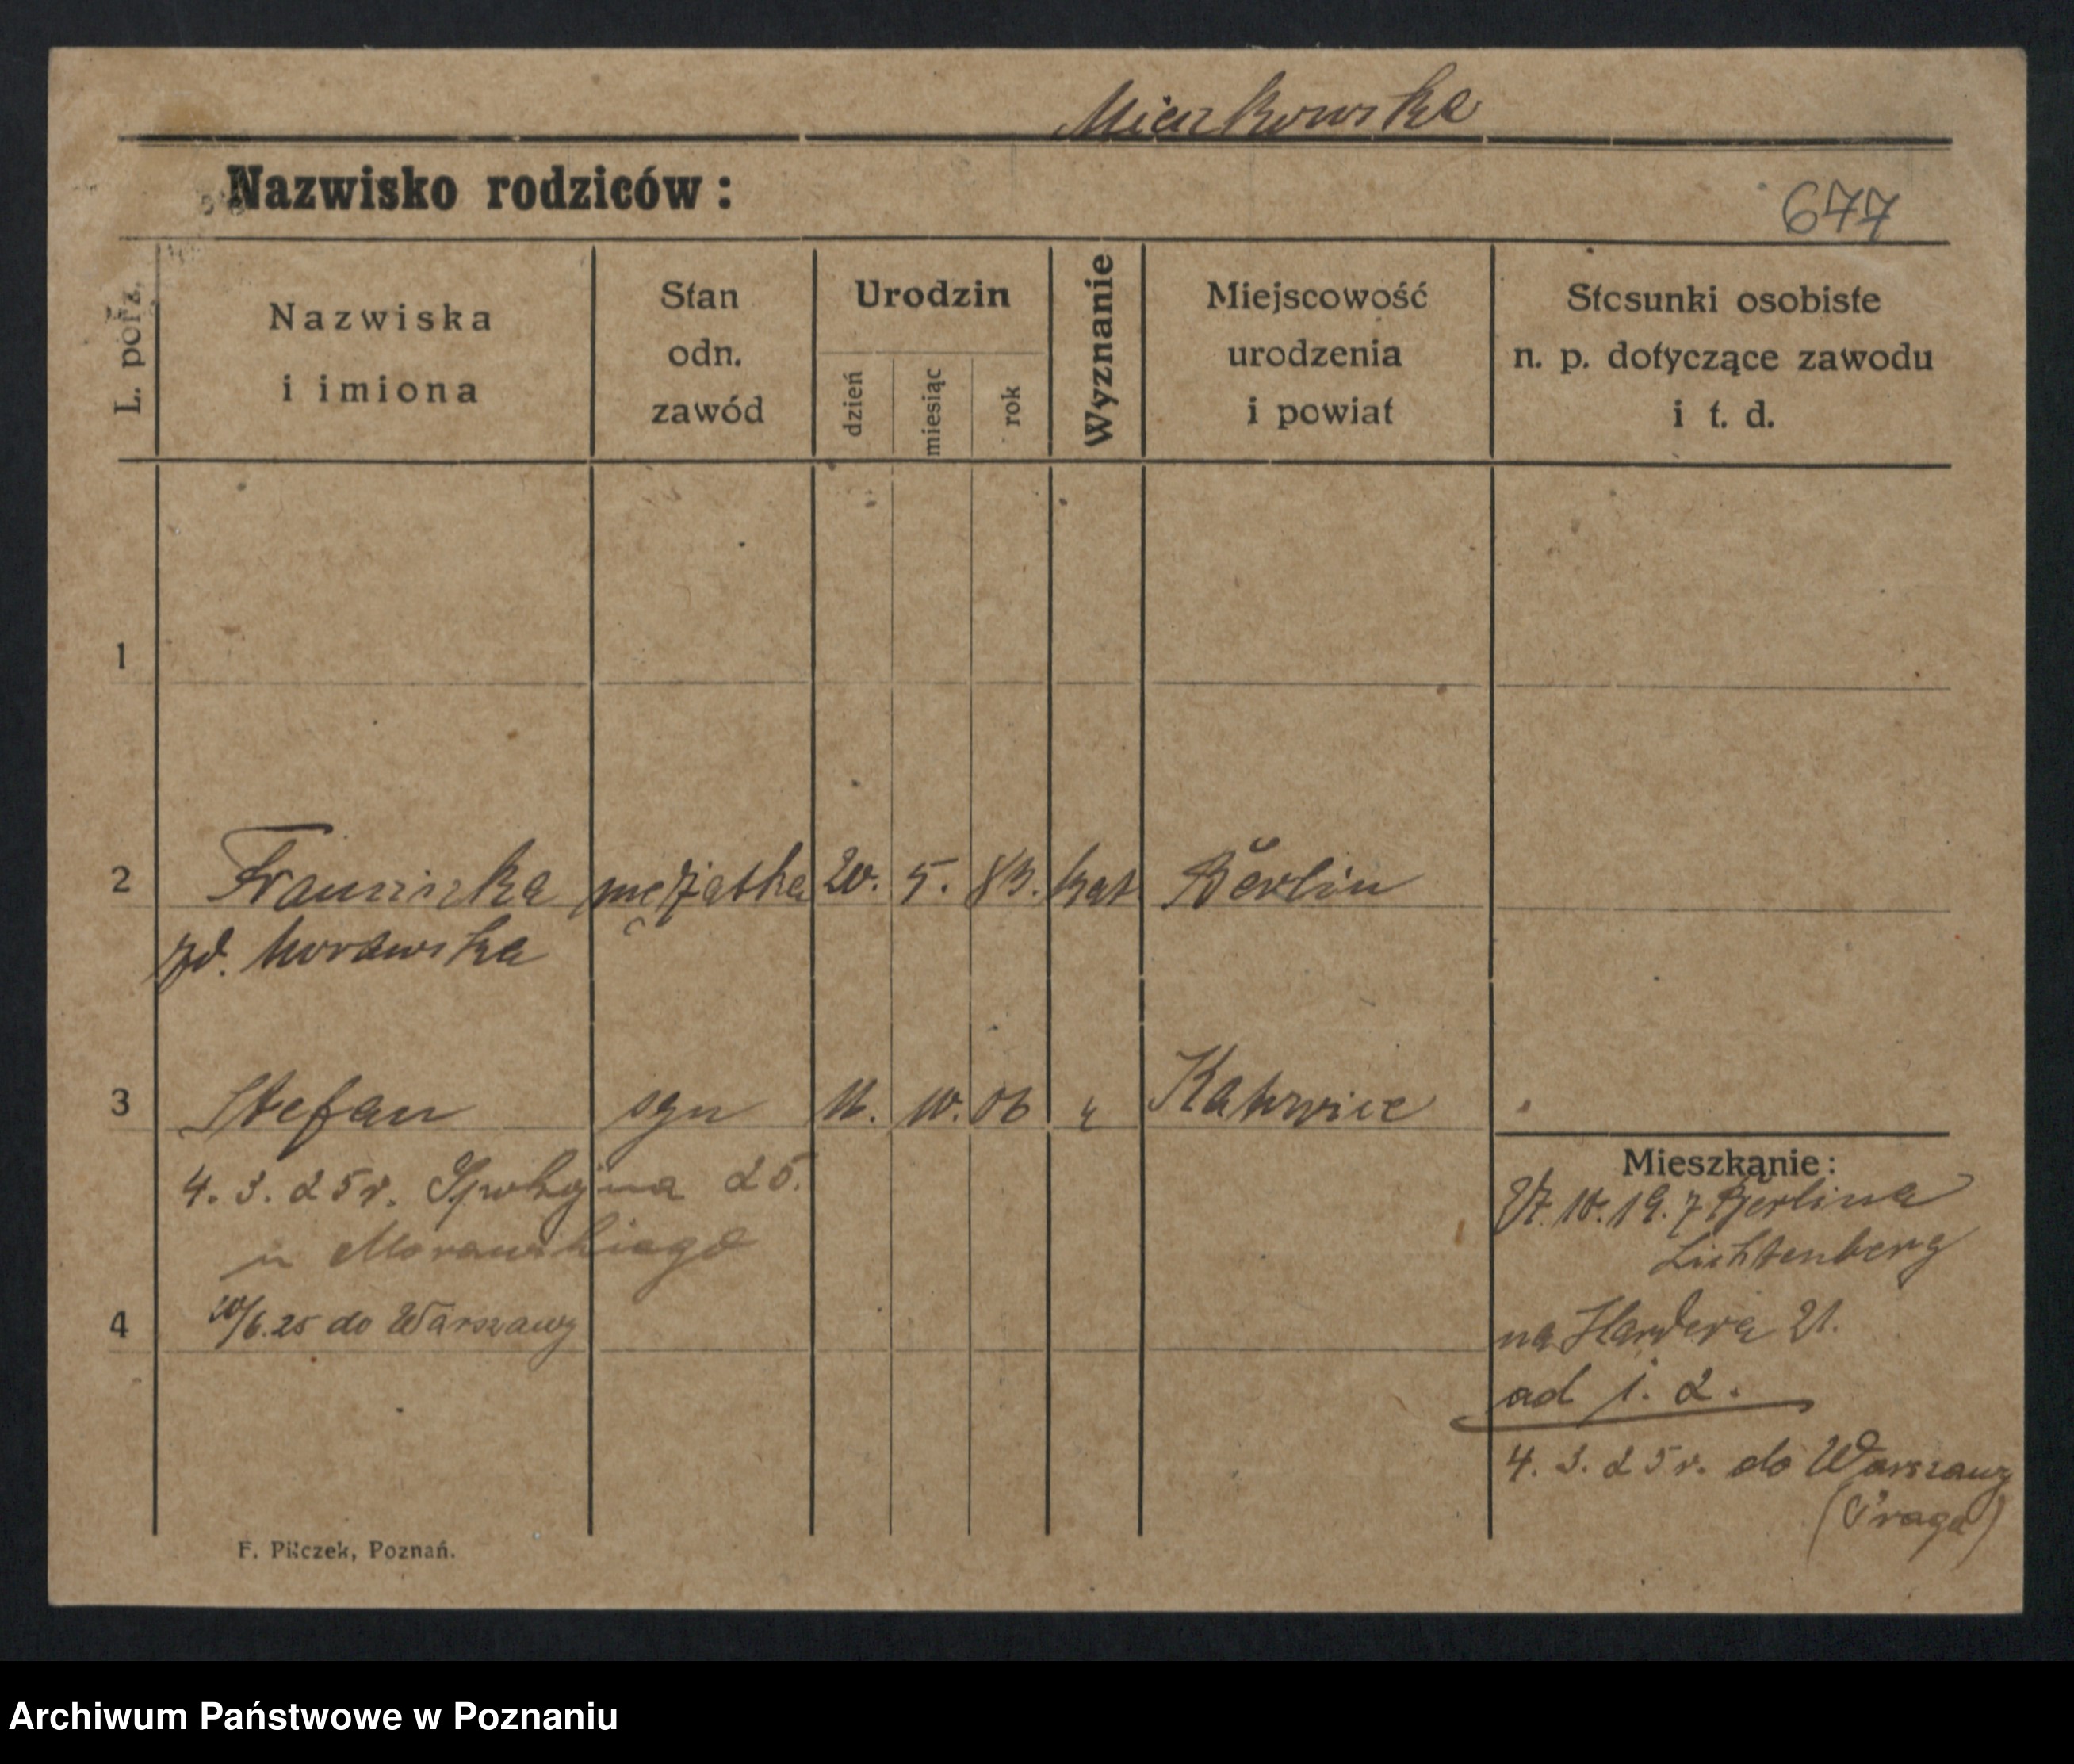 Mieczkowska
Nazwisko rodziców:
677
L. porz.
Nazwiska
i imiona
Stan
odn.
zawód
Urodzin
dzień
miesiąc
rok
Wyznanie
Miejscowość
urodzenia
i powiat
Stosunki osobiste
n. p. dotyczące zawodu
i t. d.
1
2 Franziszka mężatka 20. 5. 83. kat Berlin
zd. Morawska
3 Stefan syn 11. 10. 06 " Katowice
4. 3. 25 r. Spokojna 25.
u Morawskiego
4
20/6.25 do Warszawy
Mieszkanie:
10. 19. z Berlina
Lichtenberg
na 21.
ad 1. 2.
4. 3. 25 r. do Warszawy
(Praga)
F. Pilczek, Poznań.
Archiwum Państwowe w Poznaniu